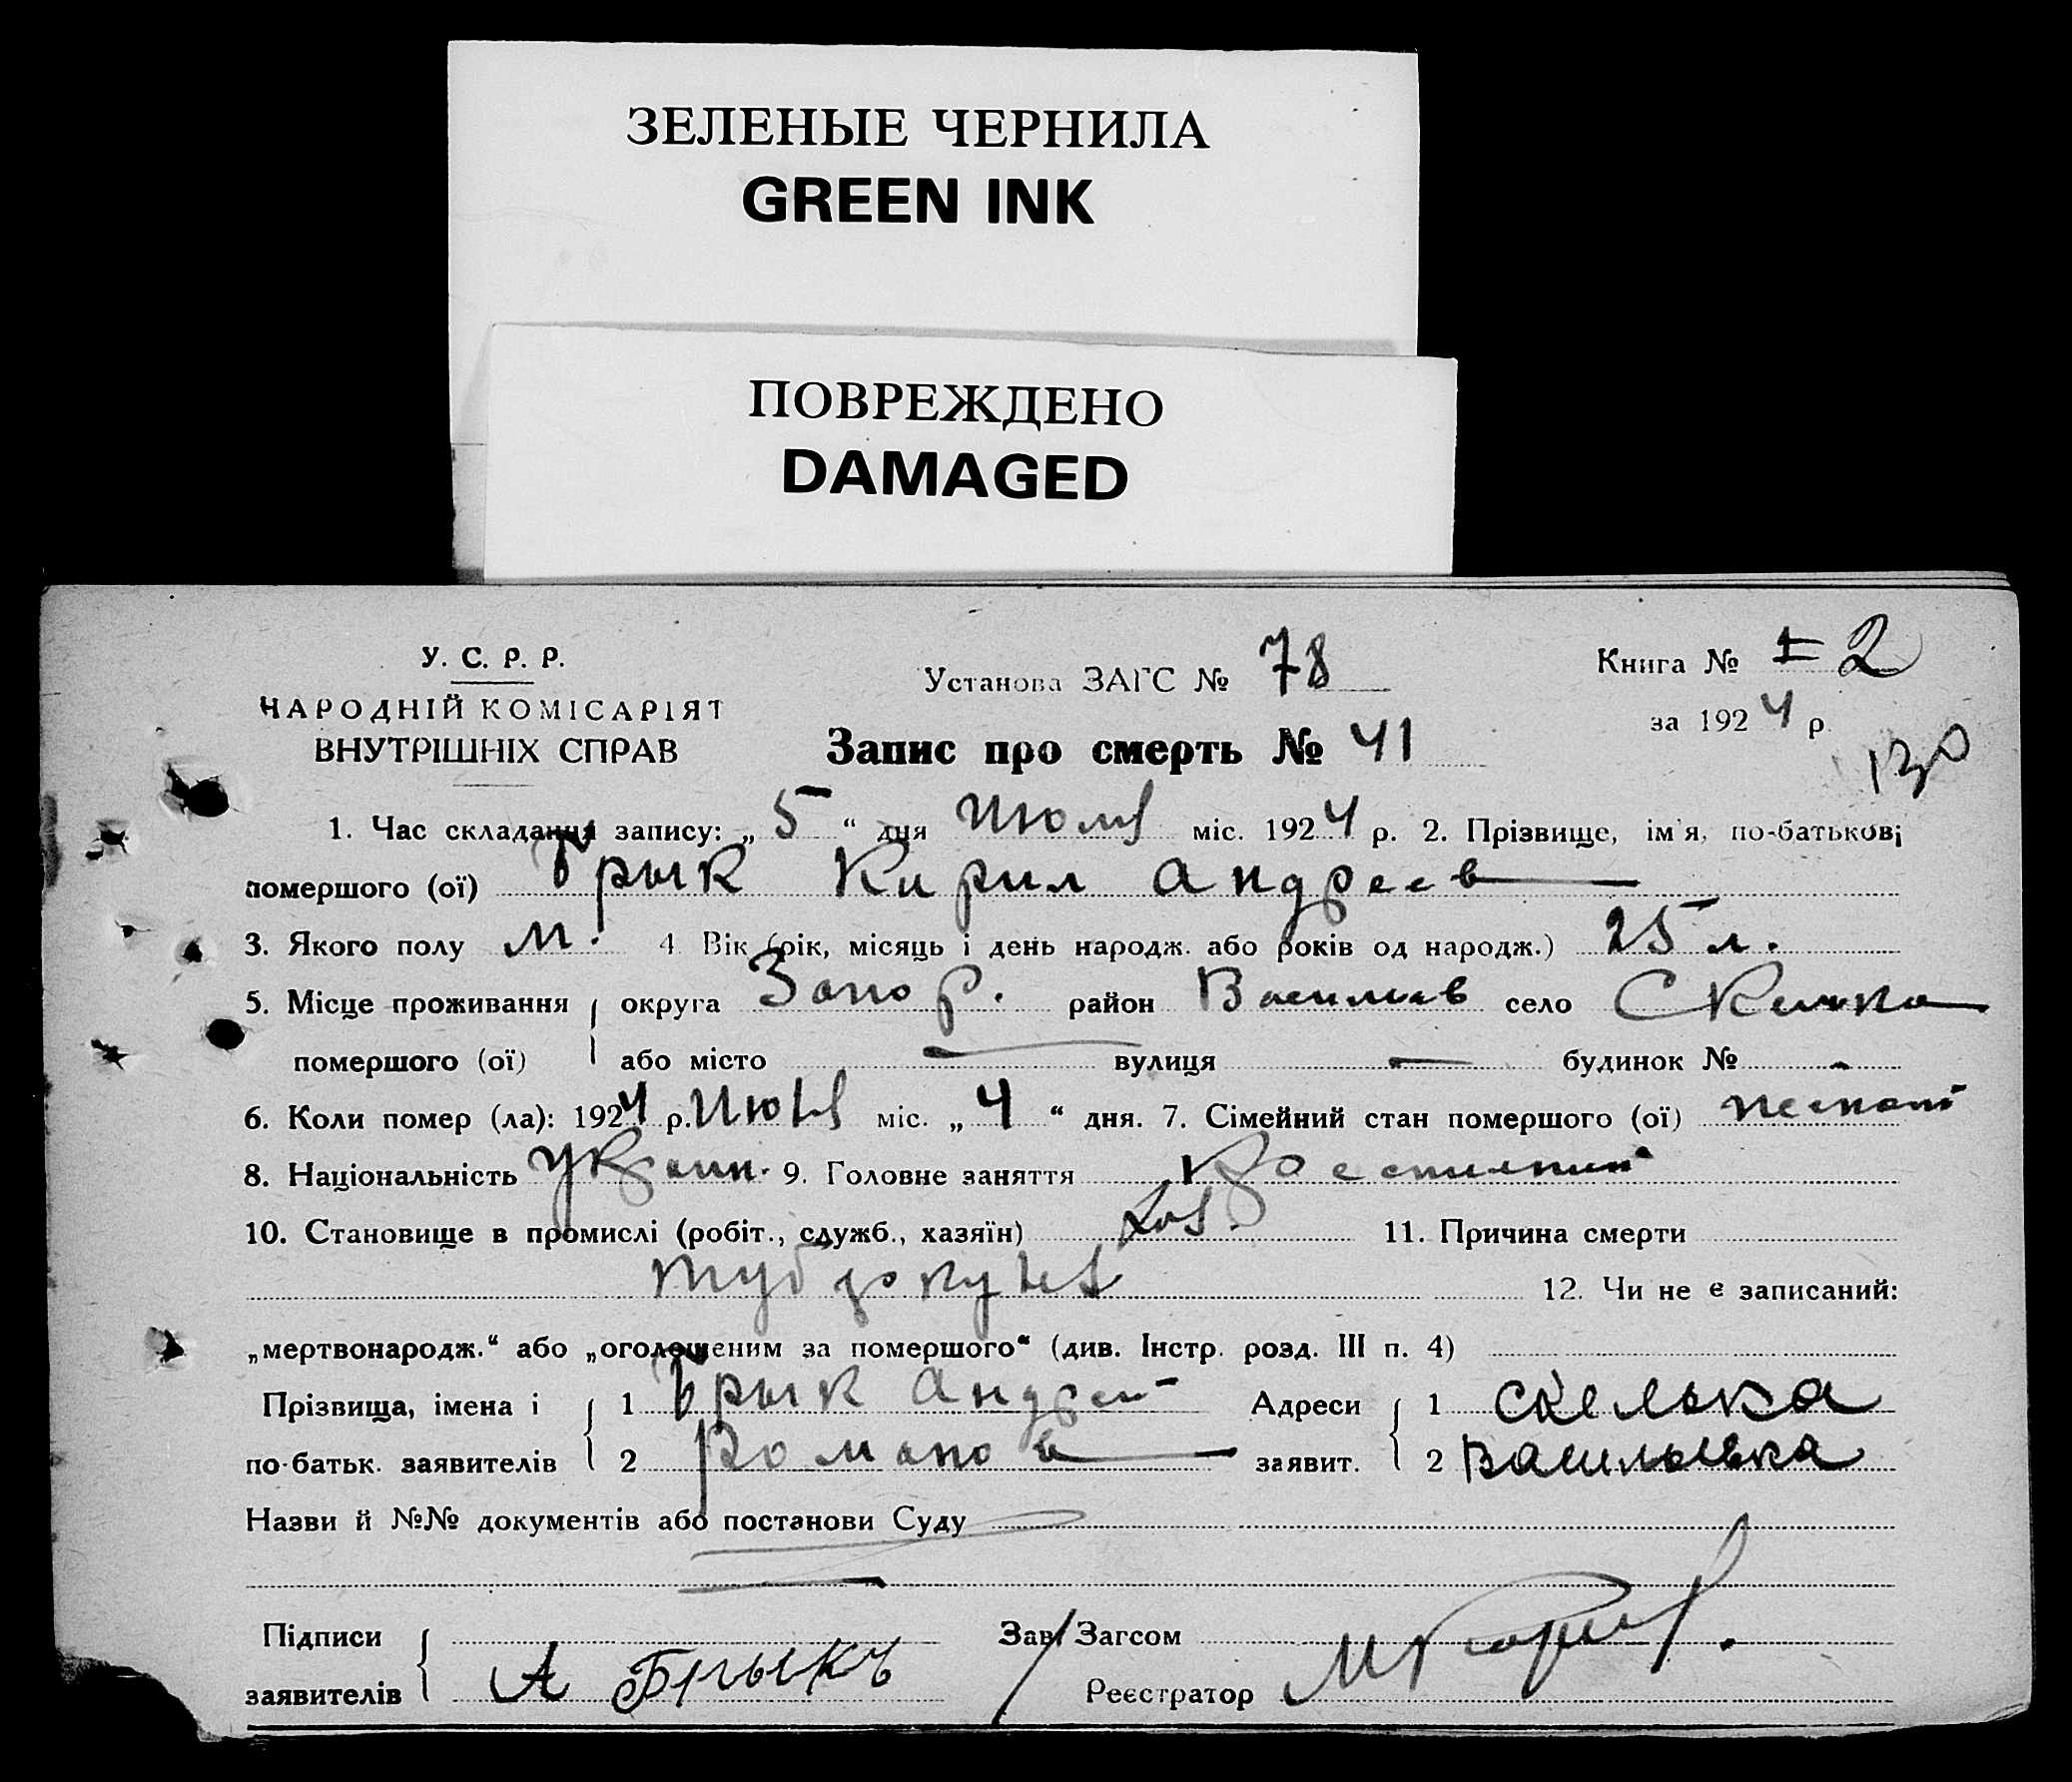 ЗЕЛЕНЫЕ ЧЕРНИЛА
GREEN INK
ПОВРЕЖДЕНО
DAMAGED
У. С. Р. Р.
НАРОДНІЙ КОМІСАРІЯТ
ВНУТРІШНІХ СПРАВ
Установа ЗАГС № 78
Запис про смерть № 41
Книга № 2
за 1924 р.
130
1. Час складання запису: „ 5 “ дня Июля міс. 1924 р. 2. Прізвище, ім'я, по-батькові
помершого (ої) Брык Кирил Андреев
3. Якого полу м. 4 Вік (рік, місяць і день народж. або років од народж.) 25 л.
5. Місце проживання { округа Запор. район Васильев село Скелька
помершого (ої) або місто — вулиця — будинок № -
6. Коли помер (ла): 1924 р. Июля міс. „ 4 “ дня. 7. Сімейний стан помершого (ої)
8. Національність Украин. 9. Головне заняття
10. Становище в промислі (робіт., служб., хазяїн) Хоз. 11. Причина смерти
туберкулез 12. Чи не є записаний:
„мертвонародж.“ або „оголошеним за помершого“ (див. Інстр. розд. III п. 4)
Прізвища, імена і { 1 Брык Андрей Адреси { 1 Скелька
по-батьк. заявителів 2 Романов заявит. 2 Васильевка
Назви й №№ документів або постанови Суду
Підписи { Зав. Загсом
заявителів А Брыкъ Реєстратор